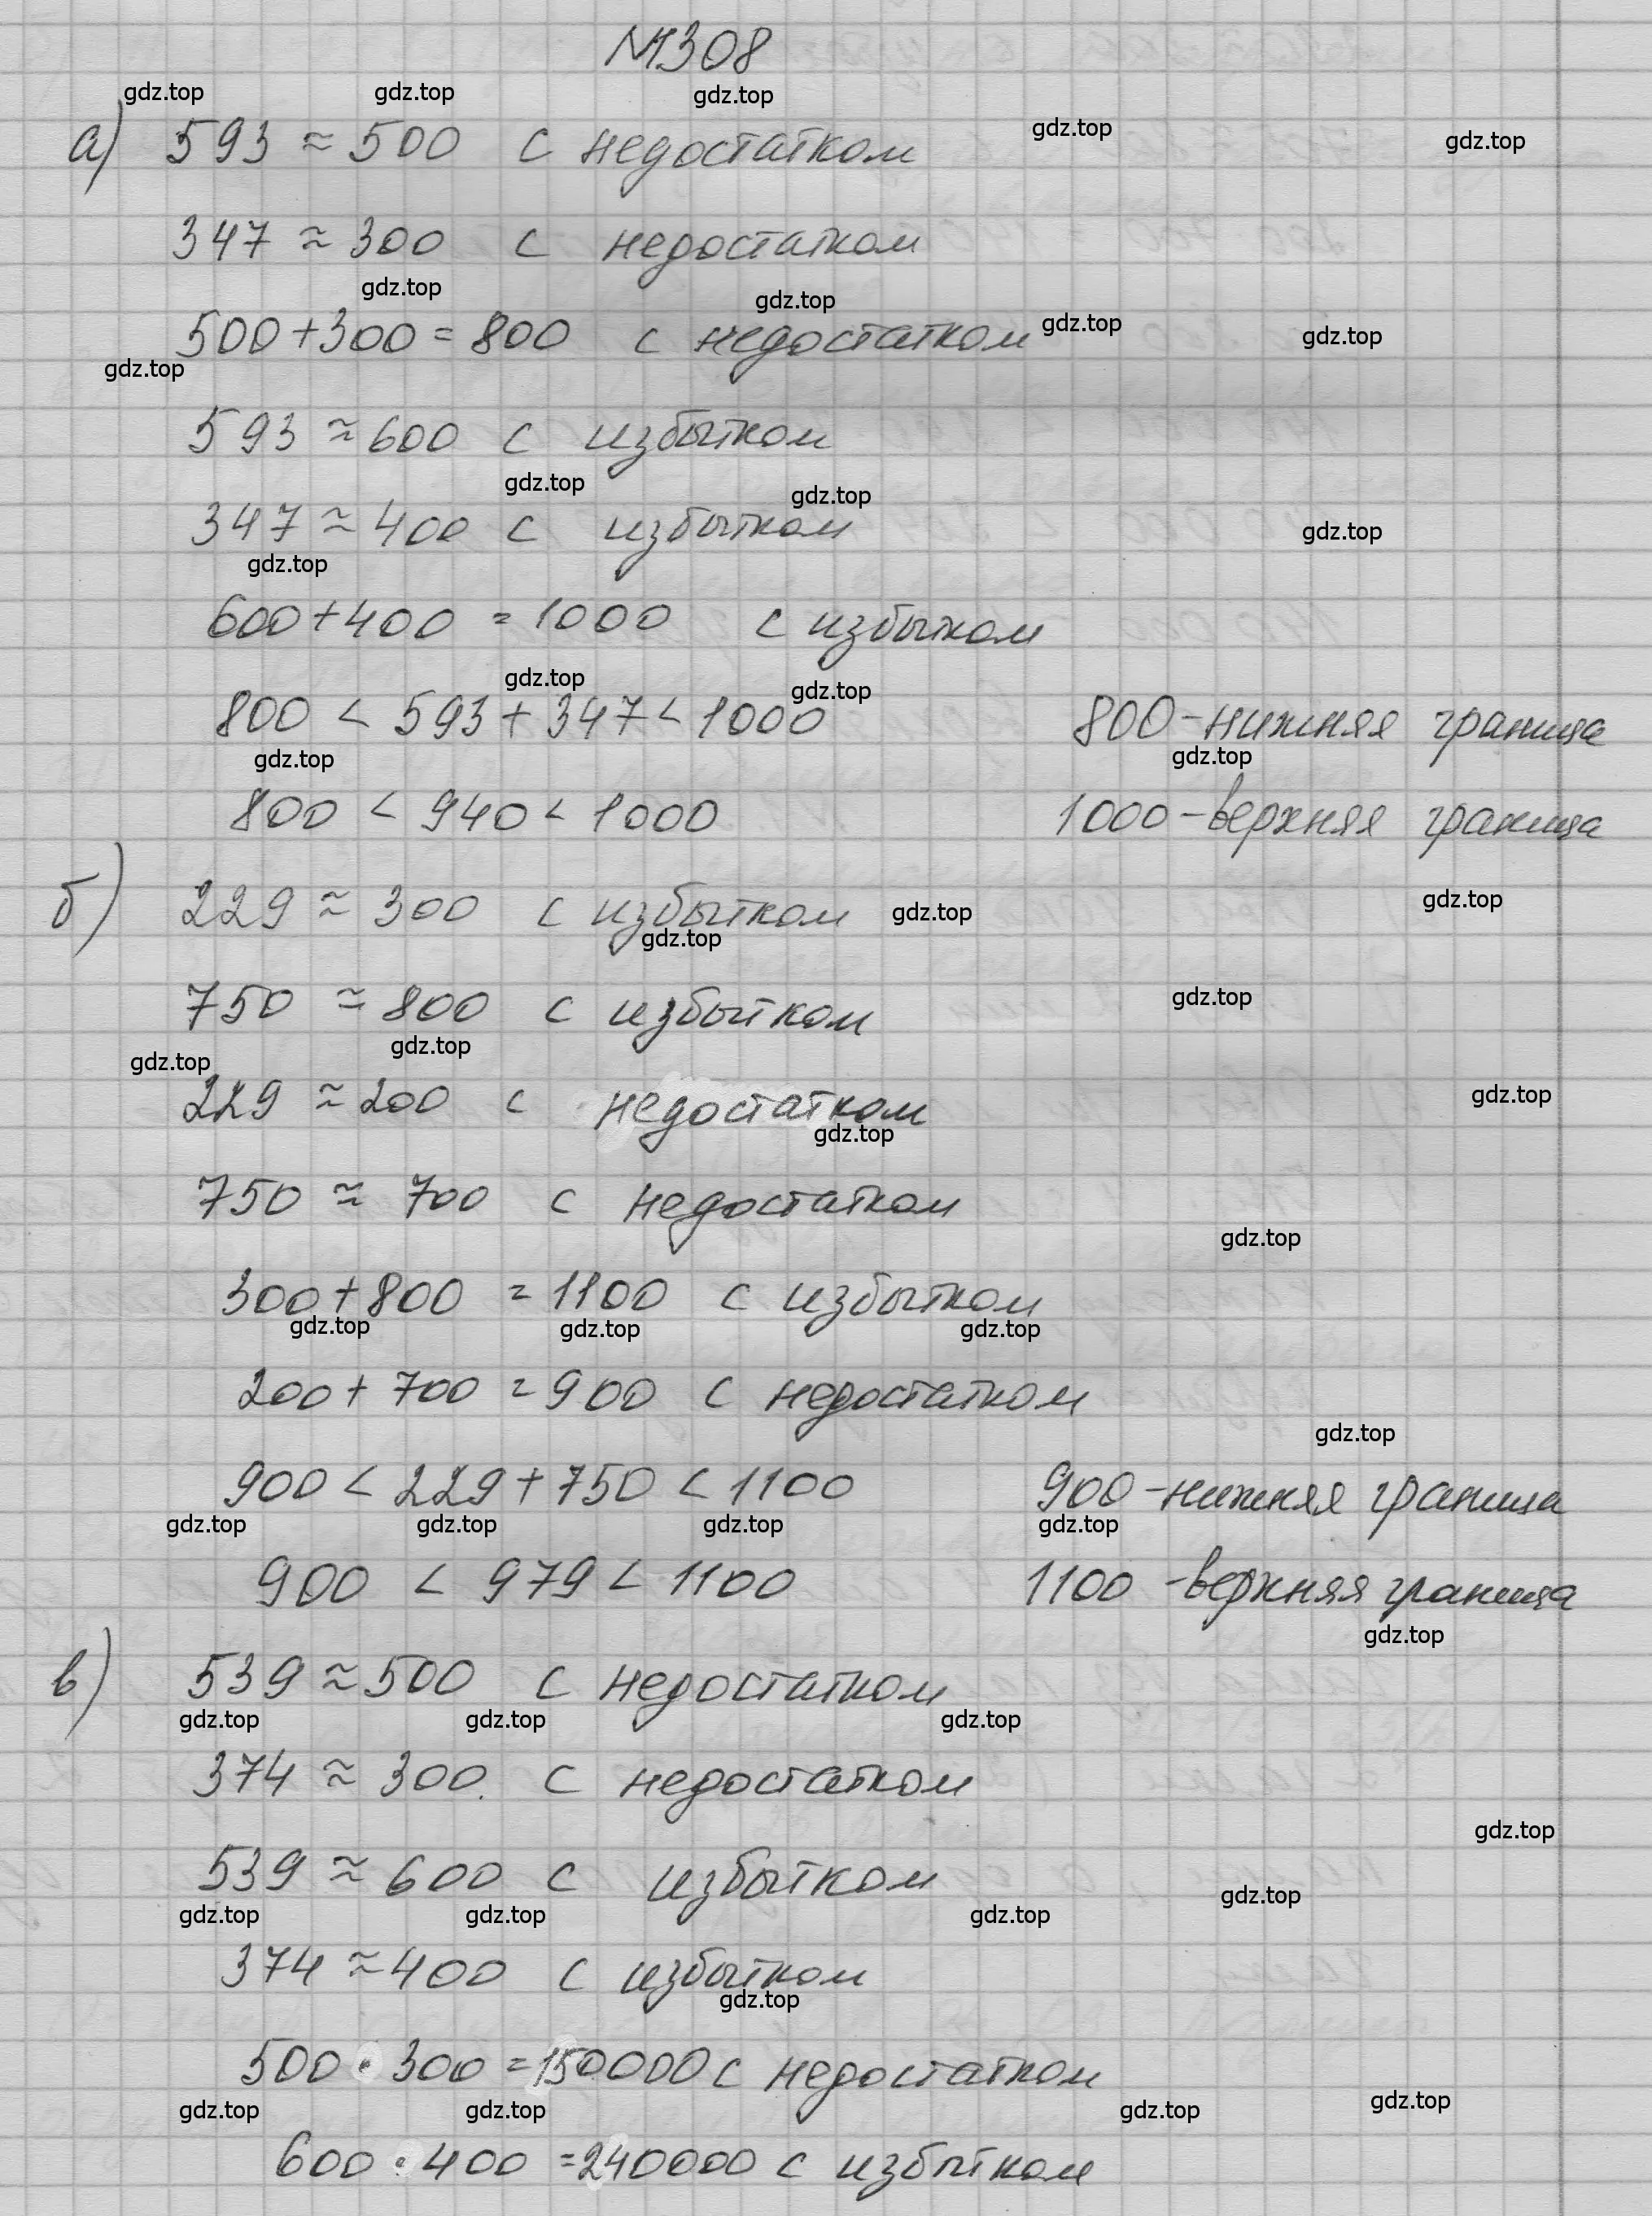 №308
gdz.top gdz.top gdz.top gdz.top gdz.top
а) 593 ≈ 500 с недостатком
347 ≈ 300 с недостатком
gdz.top gdz.top gdz.top gdz.top
500+300 = 800 с недостатком
gdz.top
593 ≈ 600 с избытком
gdz.top gdz.top
347 ≈ 400 с избытком gdz.top
gdz.top
600+400 = 1000 с избытком
gdz.top gdz.top
800 < 593 + 347 < 1000 800-нижняя граница
gdz.top gdz.top
800 < 940 < 1000 1000-верхняя граница
б) 229 ≈ 300 с избытком gdz.top gdz.top
gdz.top
750 ≈ 800 с избытком gdz.top
gdz.top gdz.top
229 ≈ 200 с недостатком gdz.top
gdz.top
750 ≈ 700 с недостатком
gdz.top
300+800 = 1100 с избытком
gdz.top gdz.top gdz.top
200+ 700 = 900 с недостатком
gdz.top
900 < 229 + 750 < 1100 900-нижняя граница
gdz.top gdz.top gdz.top gdz.top
900 < 979 < 1100 1100 -верхняя граница
gdz.top
в) 539 ≈ 500 с недостатком
gdz.top gdz.top gdz.top
374 ≈ 300. с недостатком
gdz.top
539 ≈ 600 с избытком gdz.top
gdz.top gdz.top gdz.top
374 ≈ 400 с избытком
gdz.top
500 · 300 = 150000 с недостатком
gdz.top gdz.top gdz.top gdz.top
600 · 400 = 240000 с избытком